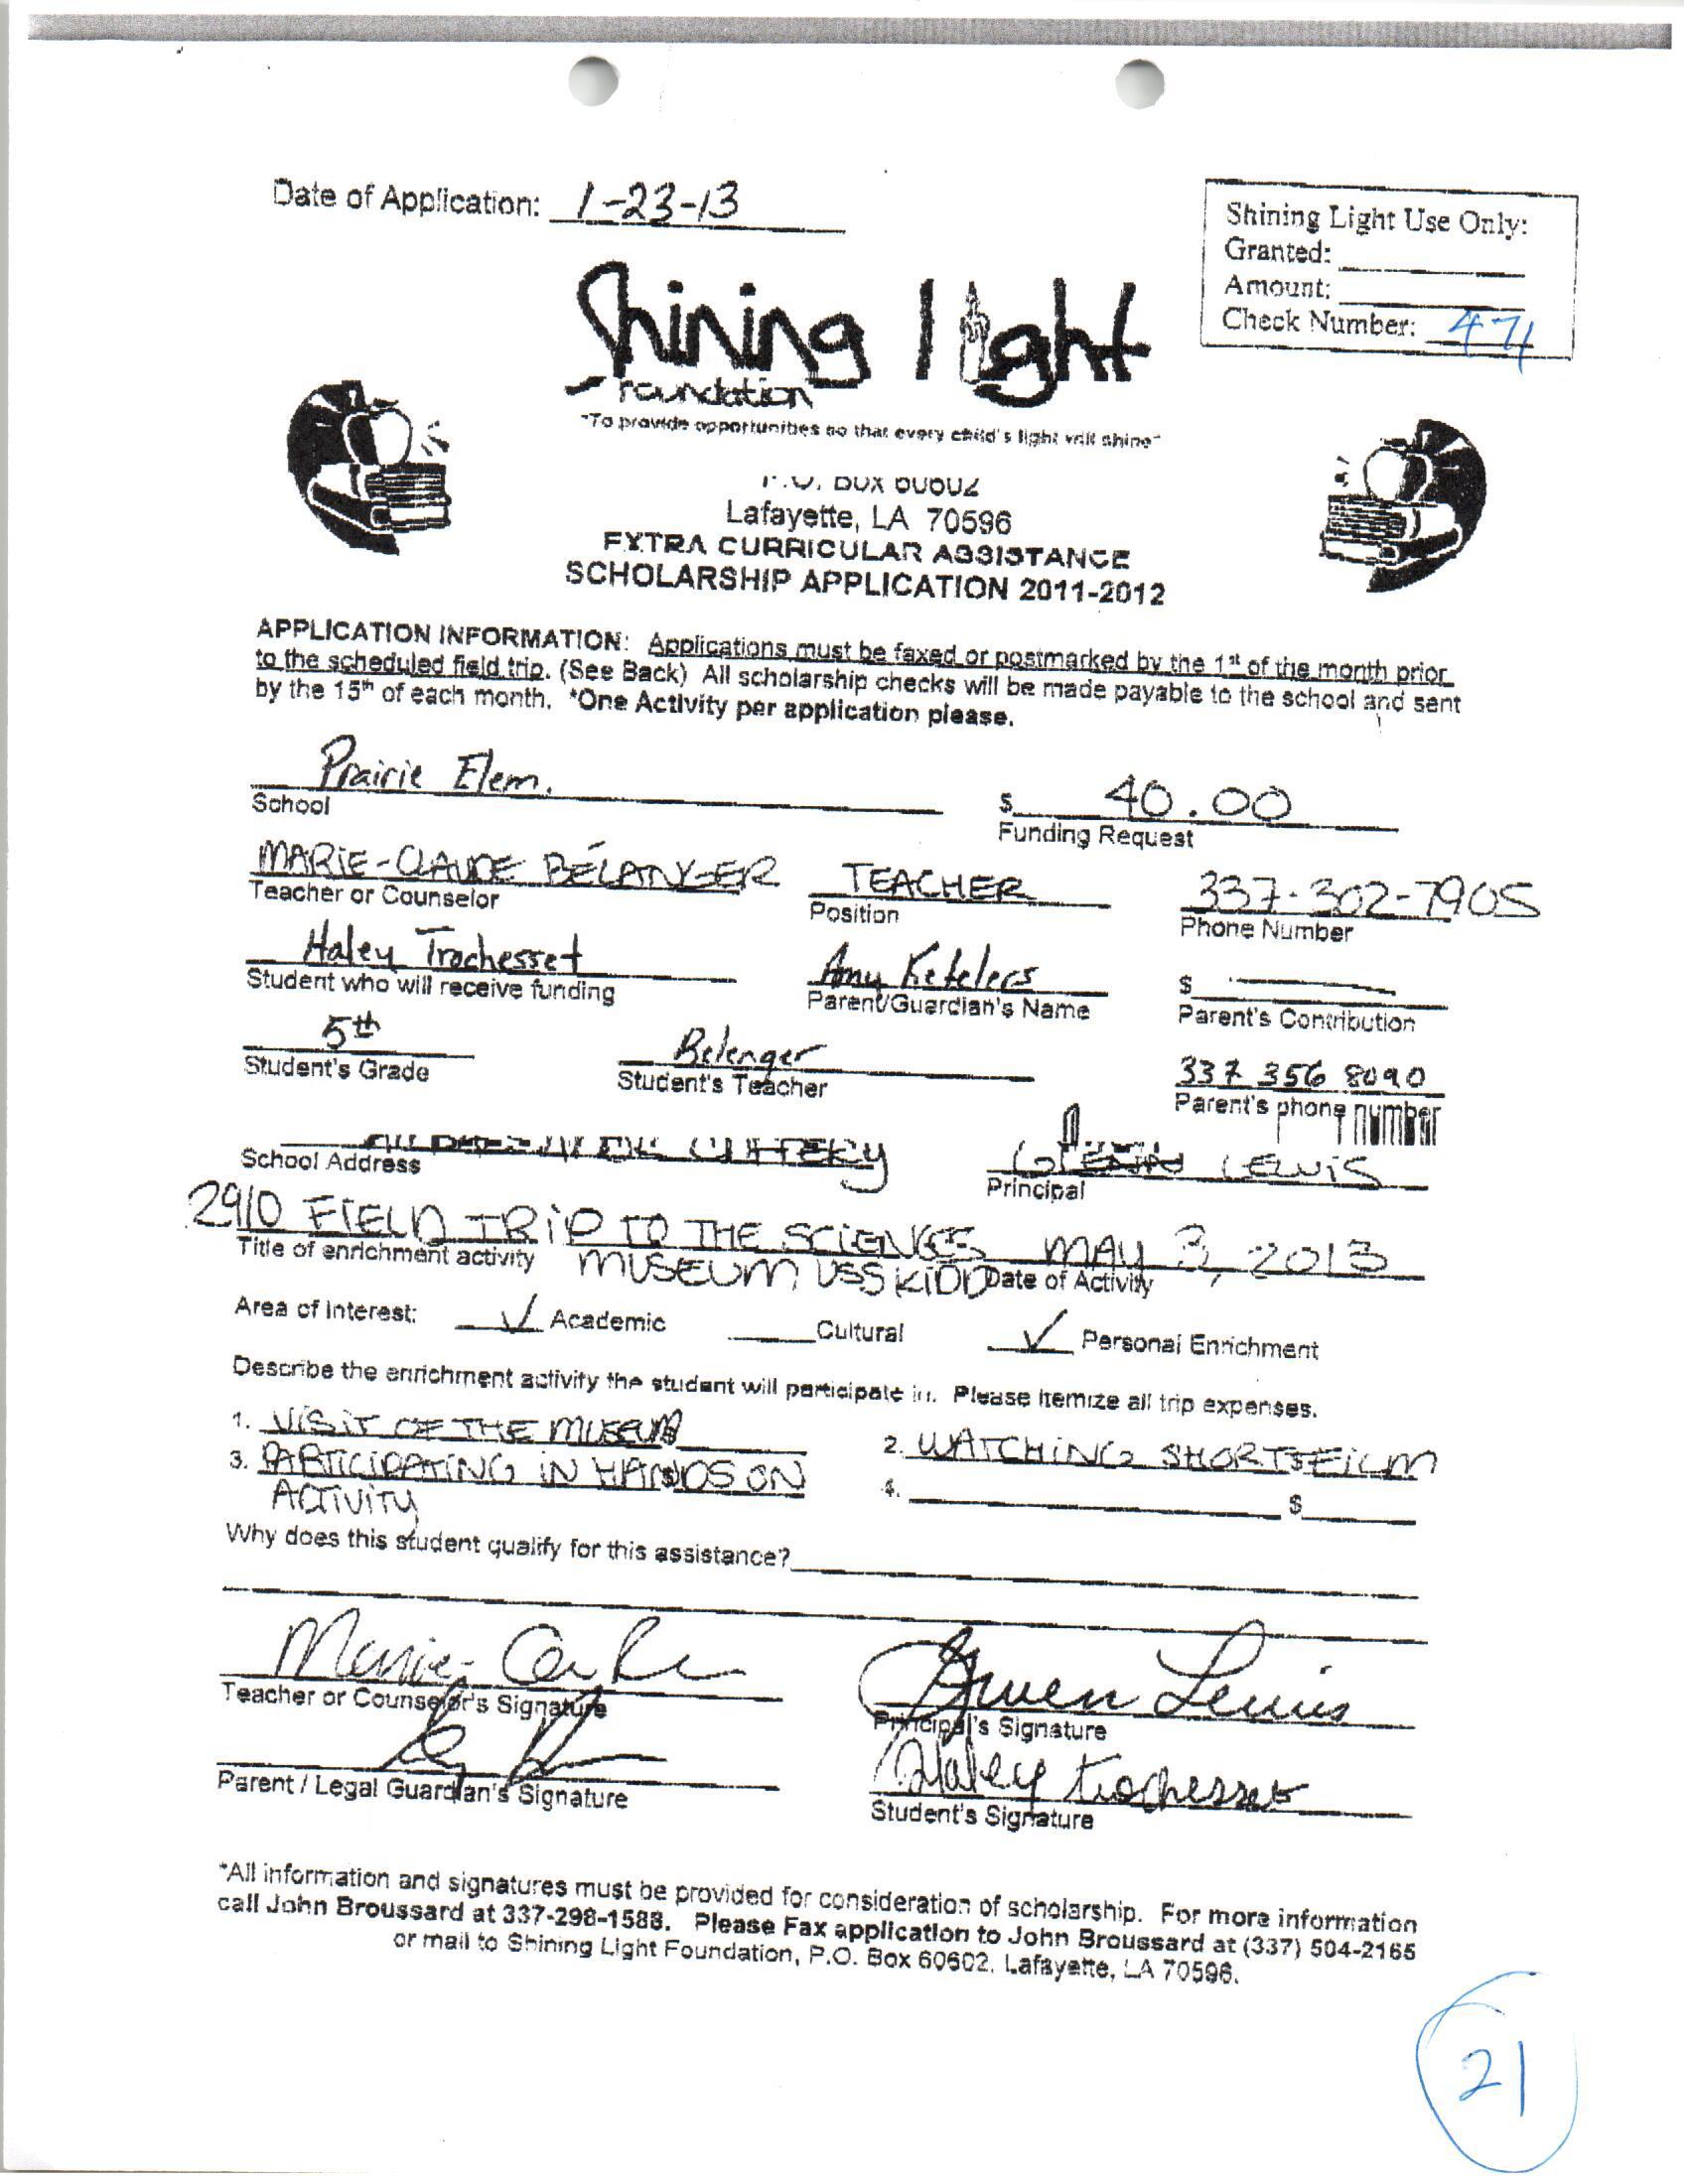 Date of Application: 1-23-13
Shining Light Use Only:
Granted:
Amount:
Check Number: 471
Shining light
Foundation
"To provide opportunities so that every child's light will shine"
P.O. Box 60602
Lafayette, LA 70596
EXTRA CURRICULAR ASSISTANCE
SCHOLARSHIP APPLICATION 2011-2012
APPLICATION INFORMATION: Applications must be faxed or postmarked by the 1st of the month prior
to the scheduled field trip. (See Back) All scholarship checks will be made payable to the school and sent
by the 15th of each month. *One Activity per application please.
Prairie Elem. $ 40.00
School Funding Request
MARIE-CLAUDE BÉLANGER TEACHER 337-302-7905
Teacher or Counselor Position Phone Number
Haley Trochesset Amy Ketelers $
Student who will receive funding Parent/Guardian's Name Parent's Contribution
5th Belenger 337 356 8090
Student's Grade Student's Teacher Parent's phone number
LEWIS
School Address Principal
2910 FIELD TRIP TO THE SCIENCES MAY 3, 2013
Title of enrichment activity MUSEUM, USS KIDD Date of Activity
Area of Interest: ✓ Academic Cultural ✓ Personal Enrichment
Describe the enrichment activity the student will participate in. Please itemize all trip expenses.
1. VISIT OF THE MUSEUM 2. WATCHING SHORTS FILM
3. PARTICIPATING IN HANDS ON 4. $
ACTIVITY
Why does this student qualify for this assistance?
Marie- Gwen Lewis
Teacher or Counselor's Signature Principal's Signature
Haley trochesset
Parent / Legal Guardian's Signature Student's Signature
*All information and signatures must be provided for consideration of scholarship. For more information
call John Broussard at 337-298-1588. Please Fax application to John Broussard at (337) 504-2165
or mail to Shining Light Foundation, P.O. Box 60602, Lafayette, LA 70596.
21